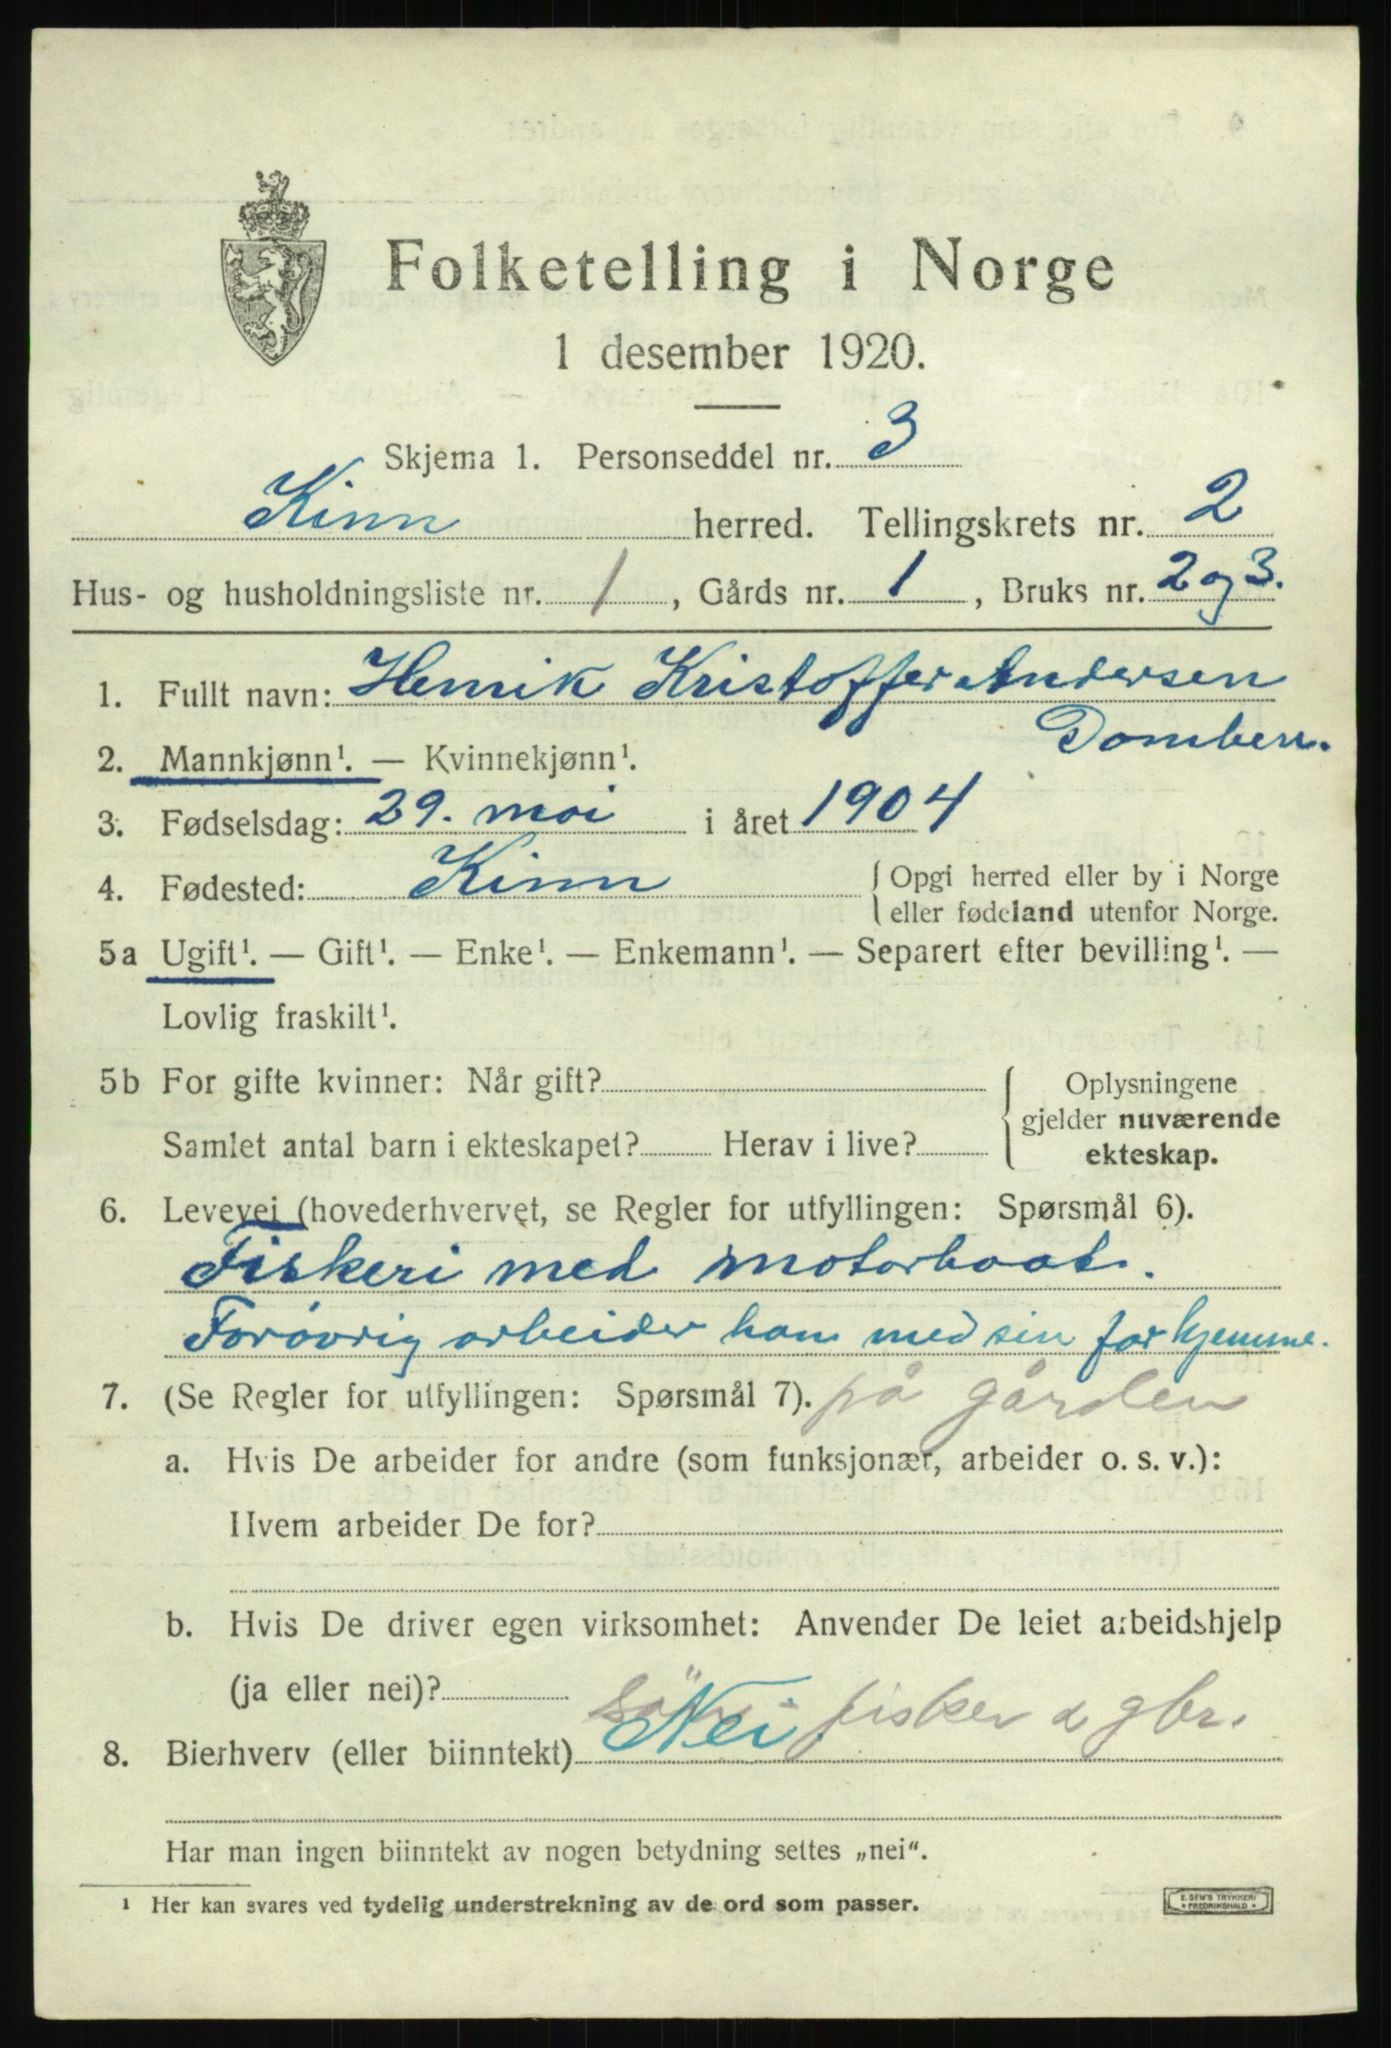 Folketelling i Norge
1 desember 1920.
Skjema 1. Personseddel nr. 3
Kinn herred. Tellingskrets nr. 2
Hus- og husholdningsliste nr. 1, Gårds nr. 1, Bruks nr. 2 og 3.
1. Fullt navn: Henrik Kristoffer Andersen
Domben.
2. Mannkjønn¹. — Kvinnekjønn¹.
3. Fødselsdag: 29. mai i året 1904
4. Fødested: Kinn { Opgi herred eller by i Norge
eller fødeland utenfor Norge.
5a Ugift¹. — Gift¹. — Enke¹. — Enkemann¹. — Separert efter bevilling¹. —
Lovlig fraskilt¹.
5b For gifte kvinner: Når gift? { Oplysningene
gjelder nuværende
Samlet antal barn i ekteskapet? Herav i live? ekteskap.
6. Levevei (hovederhvervet, se Regler for utfyllingen: Spørsmål 6).
Fiskeri med motorbaat.
Forøvrig arbeider han med sin far hjemme.
7. (Se Regler for utfyllingen: Spørsmål 7). på gården
a. Hvis De arbeider for andre (som funksjonær, arbeider o. s. v.):
Hvem arbeider De for?
b. Hvis De driver egen virksomhet: Anvender De leiet arbeidshjelp
(ja eller nei)?
fisker & gbr.
8. Bierhverv (eller biinntekt) Nei
Har man ingen biinntekt av nogen betydning settes „nei“.
¹ Her kan svares ved tydelig understrekning av de ord som passer.
E. SEM'S TRYKKERI
* FREDRIKSHALD *